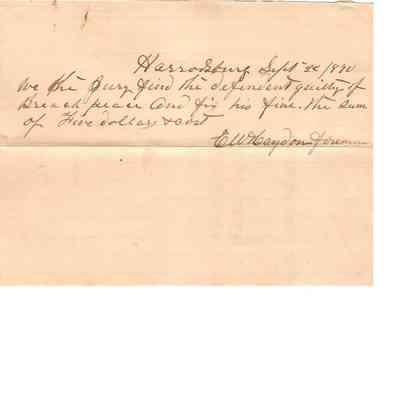 Harrodsburg Sept 22 1890
We the Jury find the defendent guilty of
Breach peace And fix his fine the sum
of Five dollars & cost
E W Haydon foreman